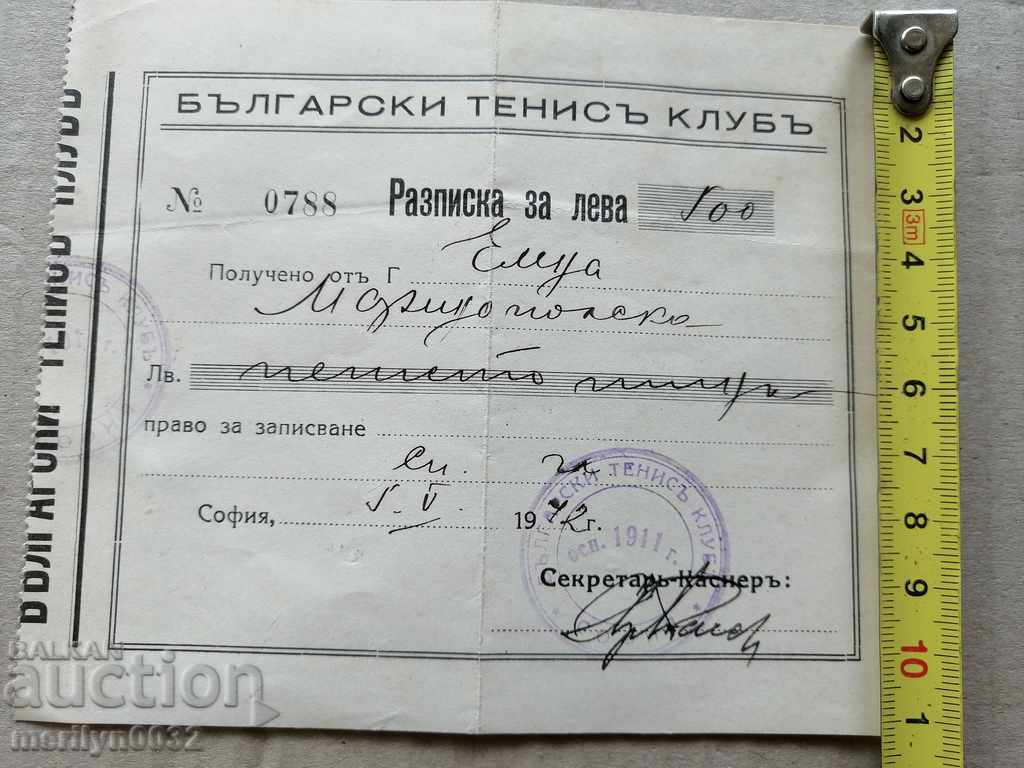 БЪЛГАРСКИ ТЕНИСЪ КЛУБЪ
БЪЛГАРСКИ ТЕНИСЪ КЛУБЪ
№ 0788 Разписка за лева 500
Получено отъ Г
Лв. петстотин
право за записване
София, 5. V. 1942 г.
БЪЛГАРСКИ ТЕНИСЪ КЛУБЪ
осн. 1911 г.
Секретарь-Касиеръ:
2
3
3m
4
5
6
7
8
9
10
1
BALKAN
auction
merilyn0032